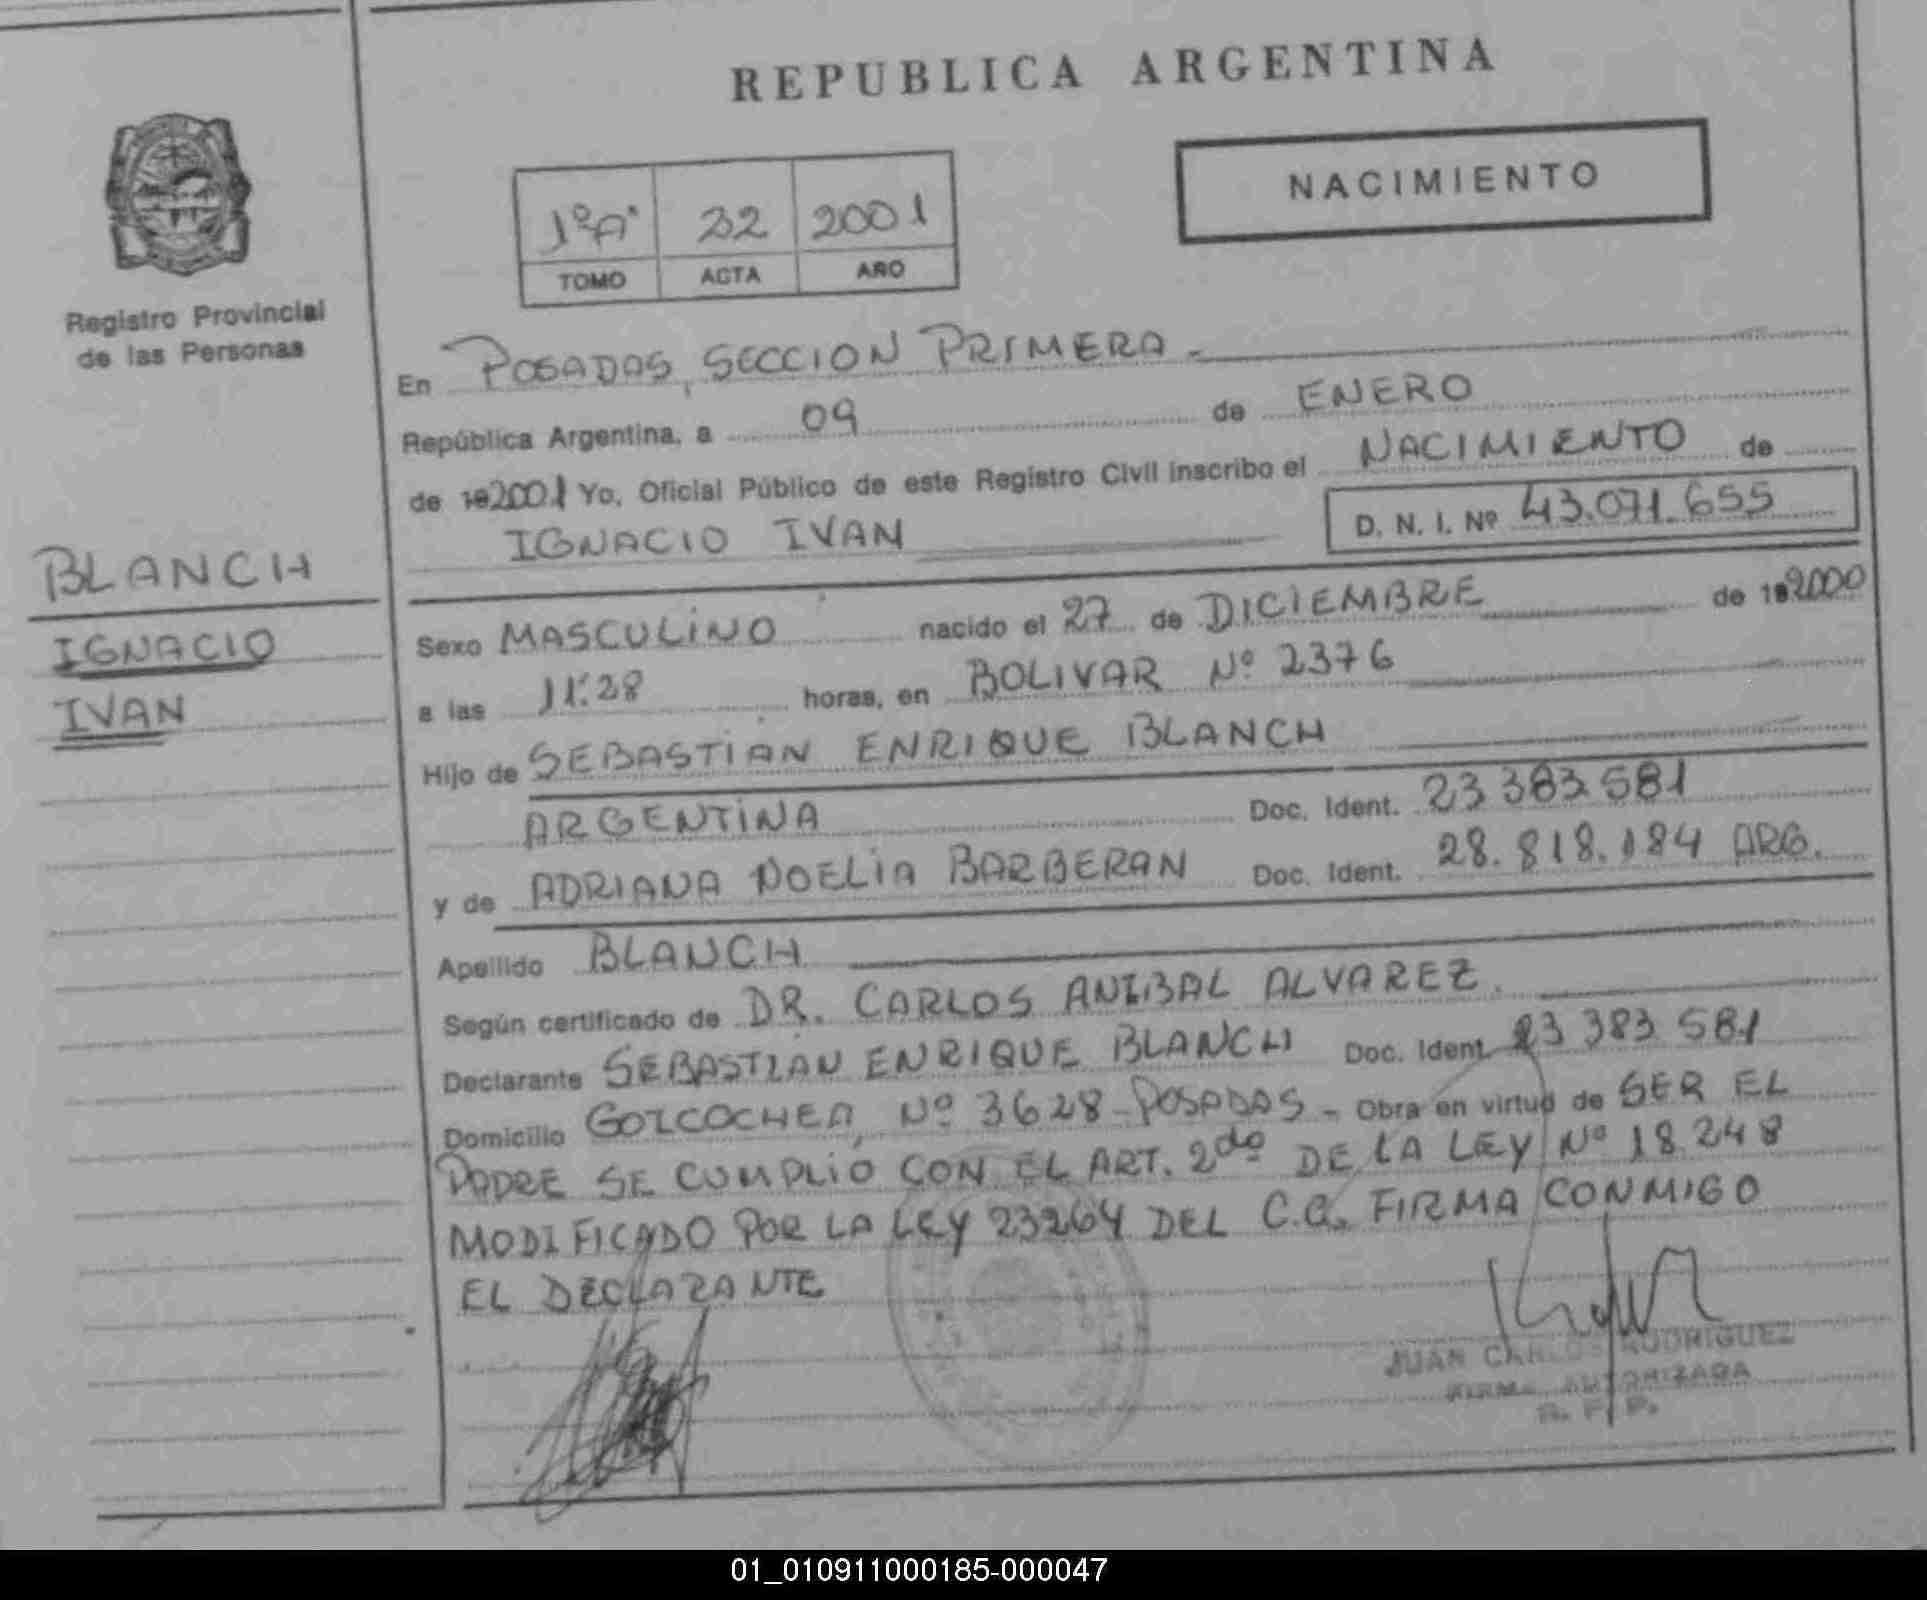 REPUBLICA ARGENTINA
NACIMIENTO
1º"A" 32 2001
TOMO ACTA AÑO
Registro Provincial
de las Personas
BLANCH
IGNACIO
IVAN
En POSADAS, SECCION PRIMERA -
República Argentina, a 09 de ENERO
de 192001 Yo, Oficial Público de este Registro Civil inscribo el NACIMIENTO de
IGNACIO IVAN D. N. I. Nº 43.071.655
Sexo MASCULINO nacido el 27 de DICIEMBRE de 192000
a las 11:28 horas, en BOLIVAR Nº 2376
Hijo de SEBASTIAN ENRIQUE BLANCH
ARGENTINA Doc. Ident. 23 383 581
y de ADRIANA NOELIA BARBERAN Doc. Ident. 28.818.184 ARG.
Apellido BLANCH
Según certificado de DR. CARLOS ANIBAL ALVAREZ.
Declarante SEBASTIAN ENRIQUE BLANCH Doc. Ident 23 383 581
Domicilio GOICOCHEA, Nº 3628 - POSADAS - Obra en virtud de SER EL
PADRE SE CUMPLIO CON EL ART. 2do DE LA LEY Nº 18.248
MODIFICADO POR LA LEY 23264 DEL C.C. FIRMA CONMIGO
EL DECLARANTE
JUAN CARLOS RODRIGUEZ
FIRMA AUTORIZADA
R. P. P.
01_010911000185-000047